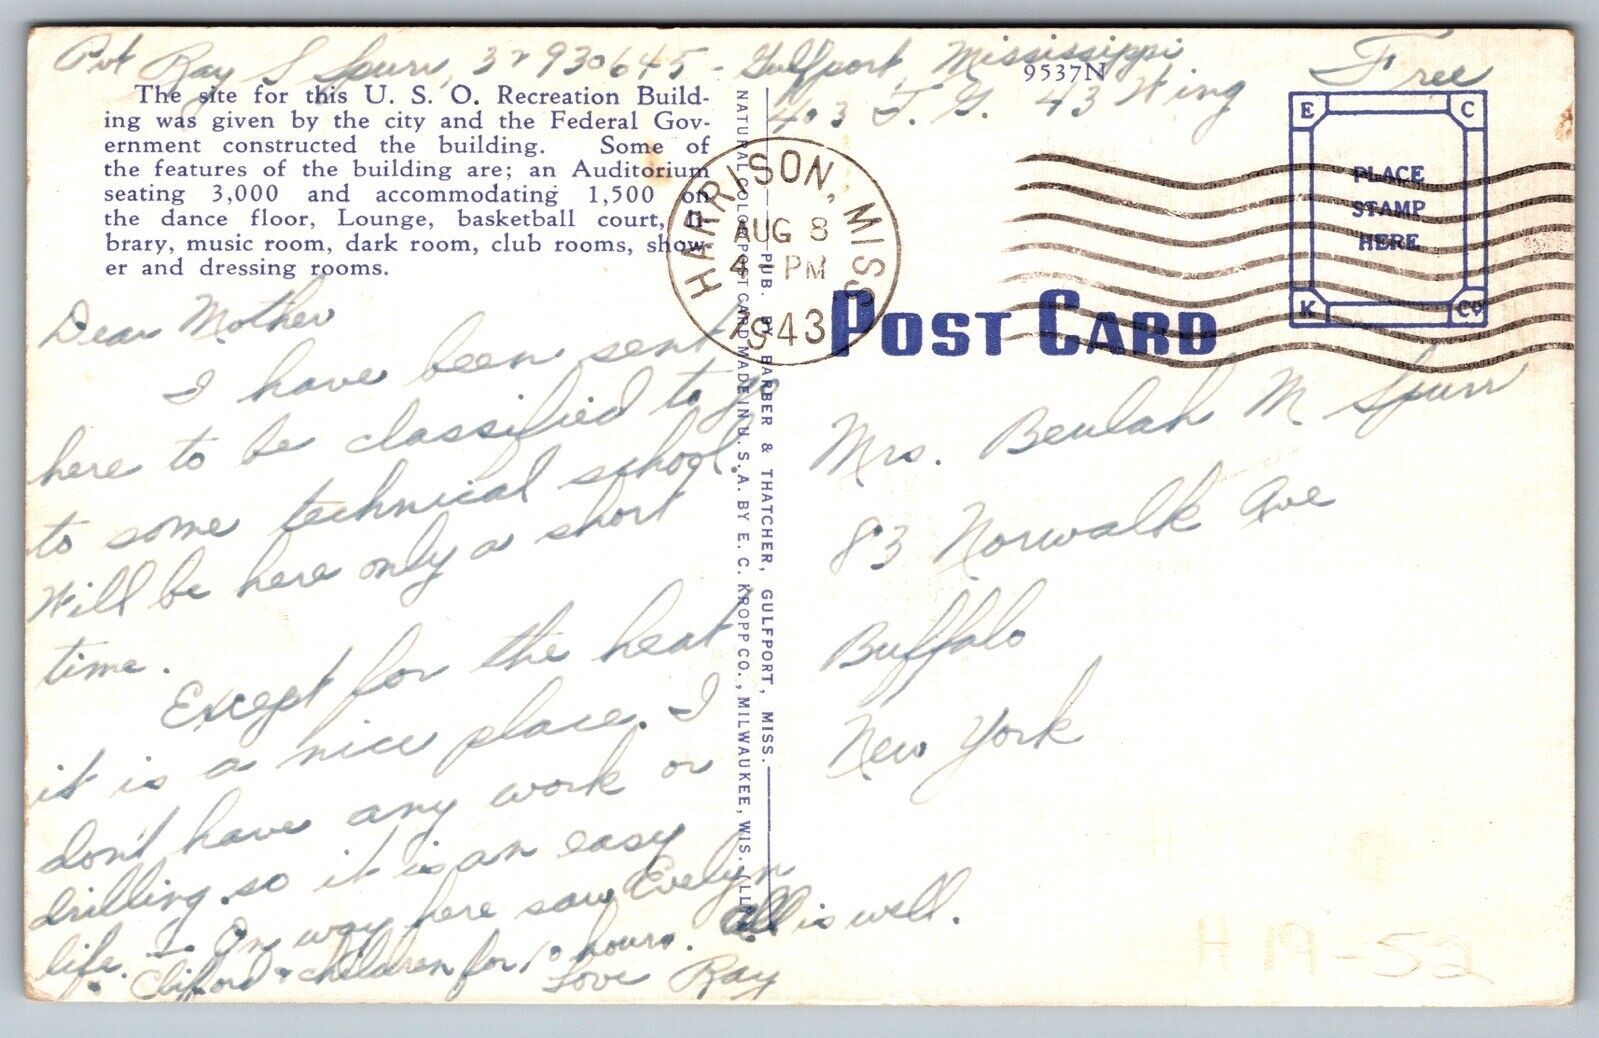 Pvt Ray S Spurr, 32930645 - Gulfport, Mississippi
403 T. G. 43 Wing
Free
9537N
The site for this U. S. O. Recreation Build-
ing was given by the city and the Federal Gov-
ernment constructed the building. Some of
the features of the building are; an Auditorium
seating 3,000 and accommodating 1,500 on
the dance floor, Lounge, basketball court, li-
brary, music room, dark room, club rooms, show-
er and dressing rooms.
Dear Mother
I have been sent
here to be classified to go
to some technical school.
Will be here only a short
time.
Except for the heat
it is a nice place. I
don't have any work or
drilling so it is an easy
life. — On way here saw Evelyn
Clifford & children for 10 hours. All is well.
Love Ray
NATURAL COLOR POST CARD MADE IN U. S. A. BY E. C. KROPP CO., MILWAUKEE, WIS.
PUB. BY BARBER & THATCHER, GULFPORT, MISS.
HARRISON, MISS
AUG 8
4 - PM
1943
E C
PLACE
STAMP
HERE
K CO
POST CARD
Mrs. Beulah M Spurr
83 Norwalk Ave
Buffalo
New York
H 19-52